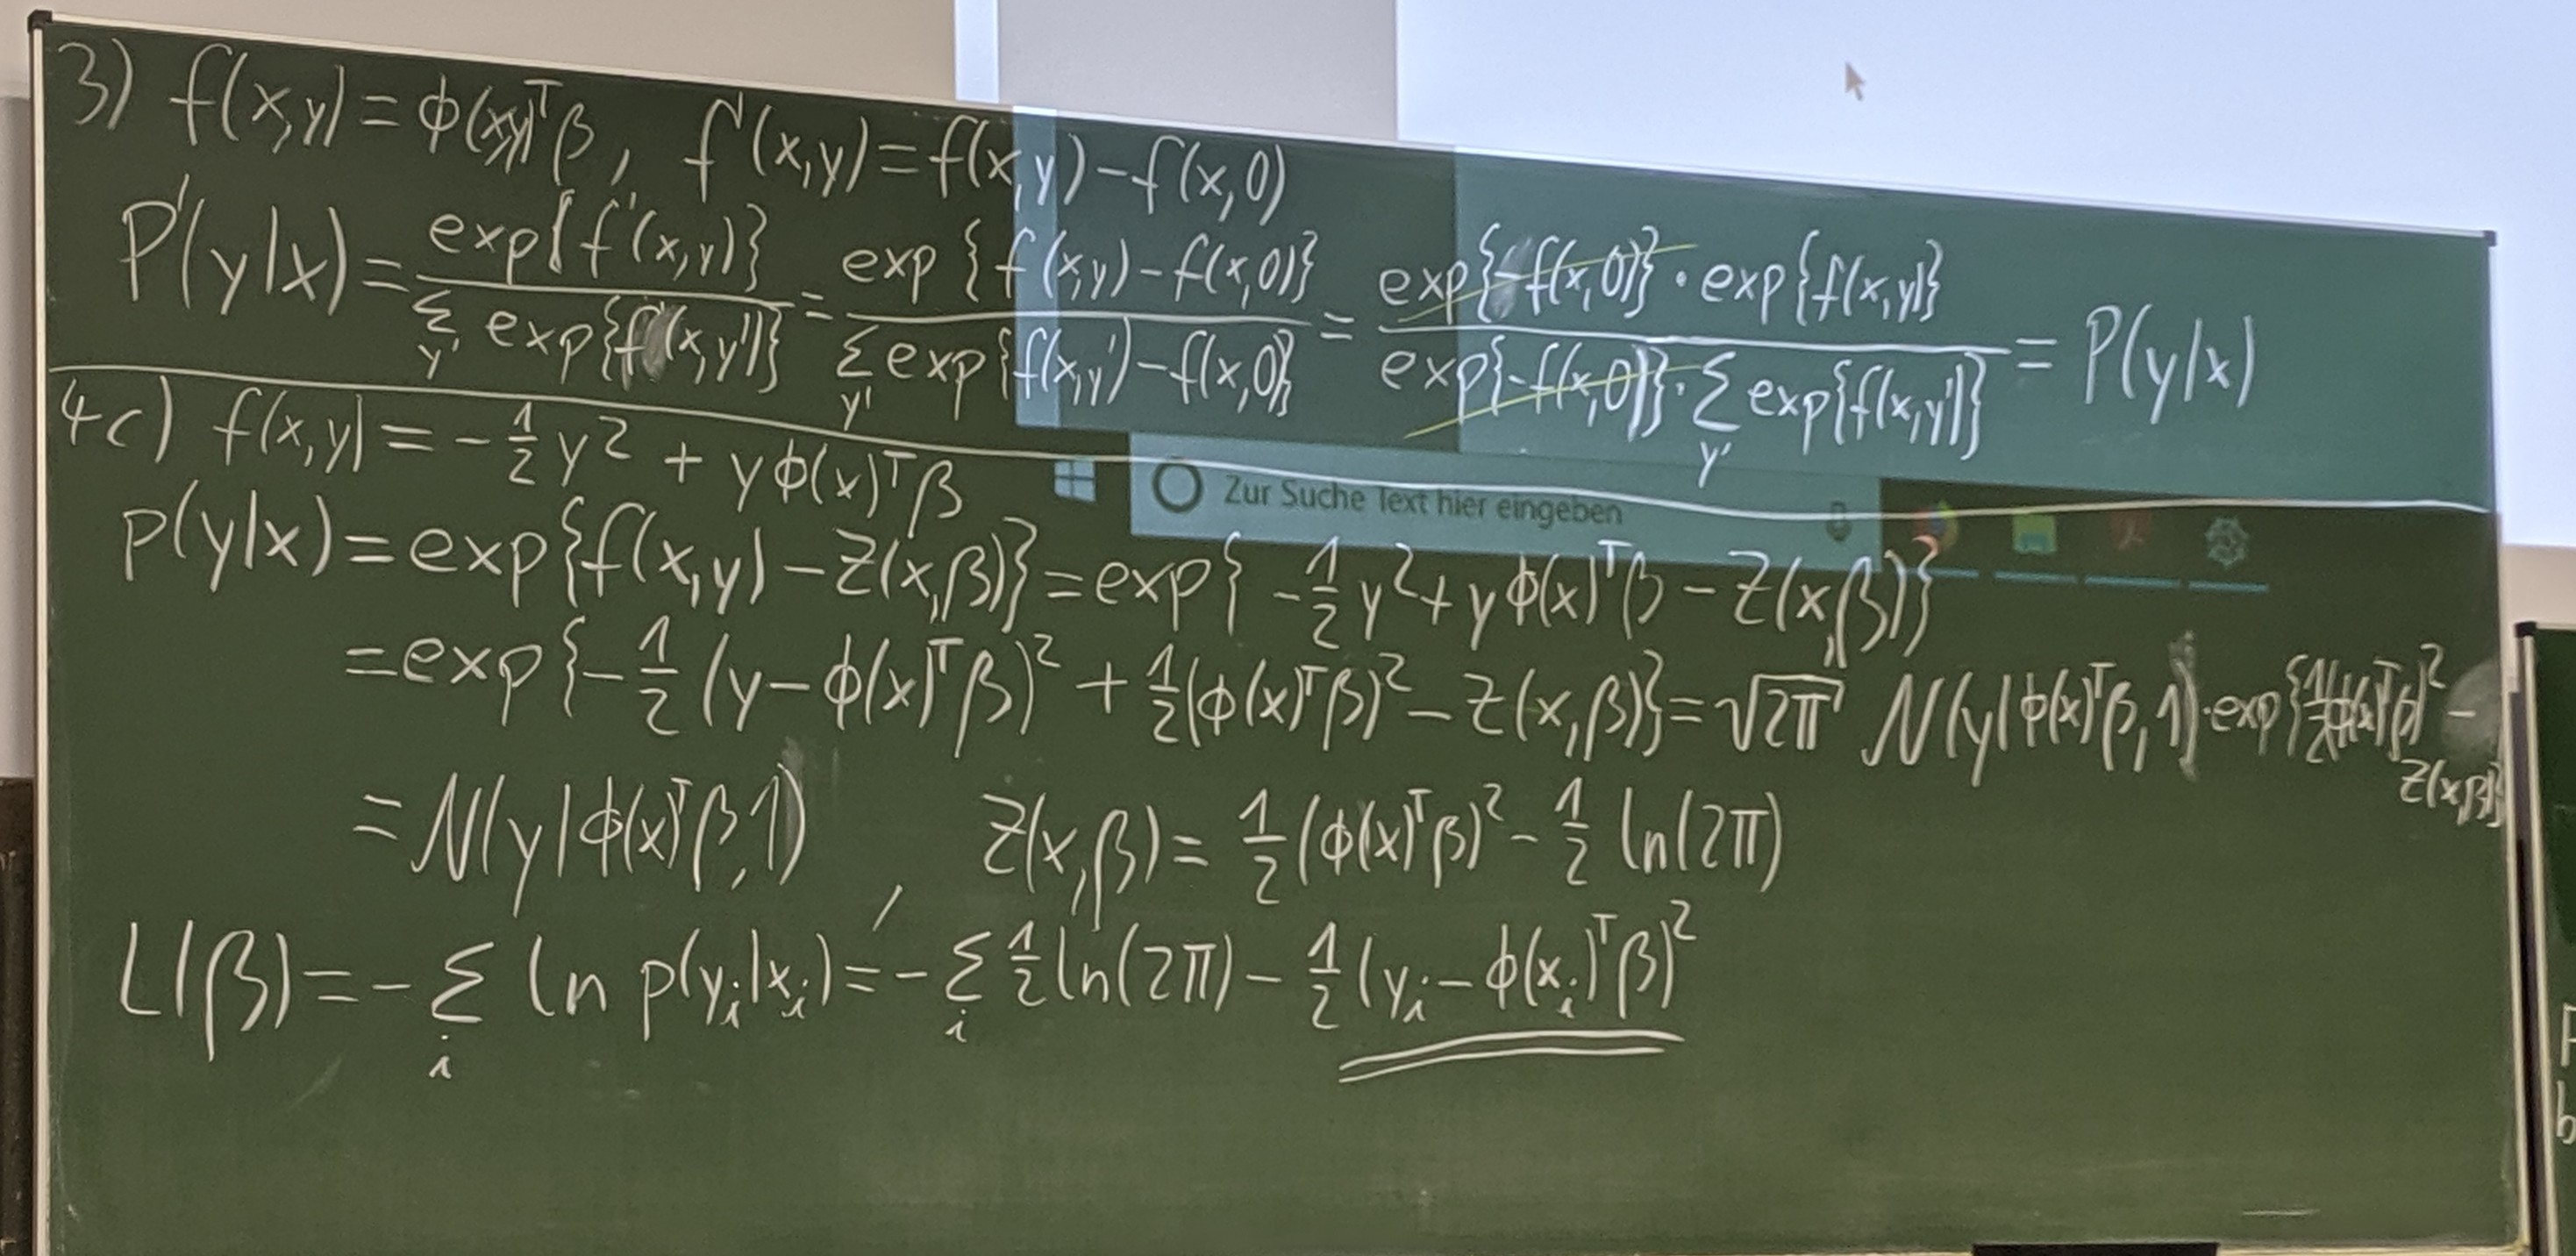 3) f(x,y) = ϕ(x,y)ᵀβ , f'(x,y) = f(x,y) − f(x,0)
P'(y|x) = exp{f'(x,y)} / Σ_y' exp{f'(x,y')} = exp{f(x,y) − f(x,0)} / Σ_y' exp{f(x,y') − f(x,0)} = exp{−f(x,0)} · exp{f(x,y)} / exp{−f(x,0)} · Σ_y' exp{f(x,y')} = P(y|x)
4c) f(x,y) = −½y² + yϕ(x)ᵀβ
Zur Suche Text hier eingeben
p(y|x) = exp{f(x,y) − Z(x,β)} = exp{−½y² + yϕ(x)ᵀβ − Z(x,β)}
= exp{−½(y − ϕ(x)ᵀβ)² + ½(ϕ(x)ᵀβ)² − Z(x,β)} = √2π N(y|ϕ(x)ᵀβ,1) · exp{½(ϕ(x)ᵀβ)² − Z(x,β)}
= N(y|ϕ(x)ᵀβ,1) , Z(x,β) = ½(ϕ(x)ᵀβ)² − ½ ln(2π)
L(β) = −Σ_i ln p(y_i|x_i) = −Σ_i ½ ln(2π) − ½(y_i − ϕ(x_i)ᵀβ)²